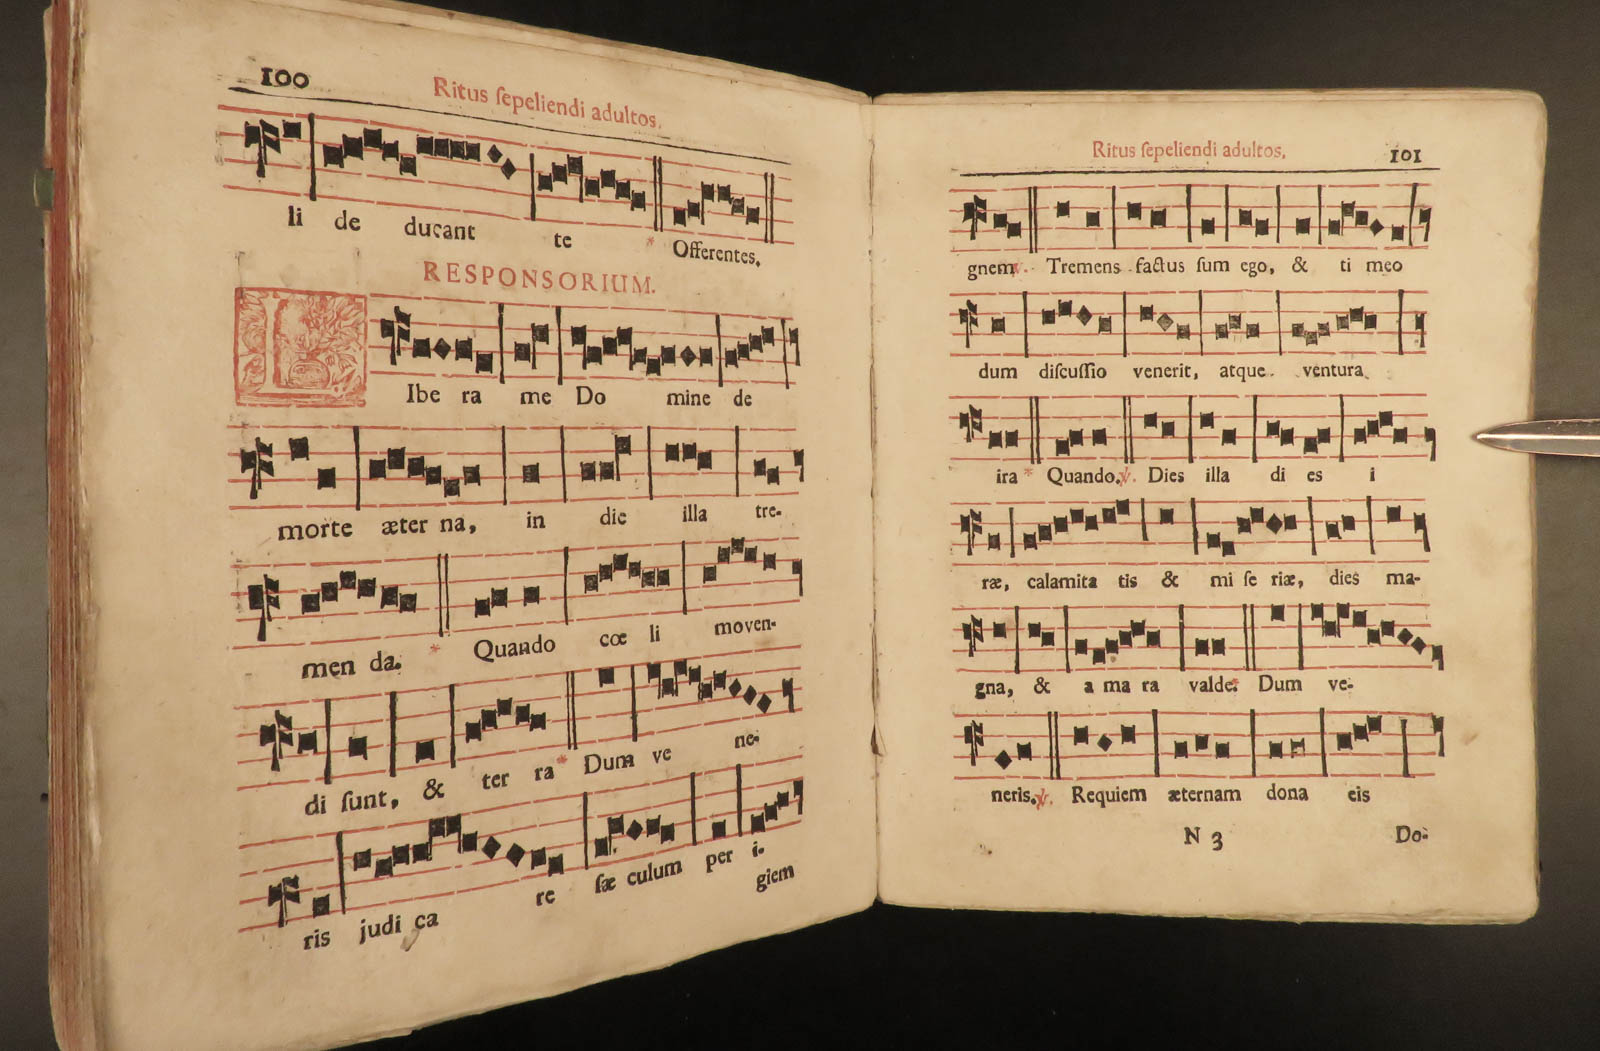 100
Ritus ſepeliendi adultos.
li de ducant te * Offerentes.
RESPONSORIUM.
LIbe ra me Do mine de
morte æter na, in die illa tre-
men da. * Quando cœ li moven-
di ſunt, & ter ra * Dum ve ne-
ris judi ca re ſæ culum per i-
giem
Ritus ſepeliendi adultos. 101
gnem ℣. Tremens factus ſum ego, & ti meo
dum diſcuſſio venerit, atque ventura
ira * Quando. ℣. Dies illa di es i
ræ, calamita tis & mi ſe riæ, dies ma-
gna, & a ma ra valde. * Dum ve-
neris. ℣. Requiem æternam dona eis
N 3 Do-